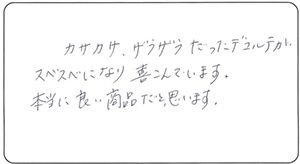 カサカサ、ザラザラだったデコルテが、
スベスベになり喜こんでいます。
本当に良い商品だと思います。